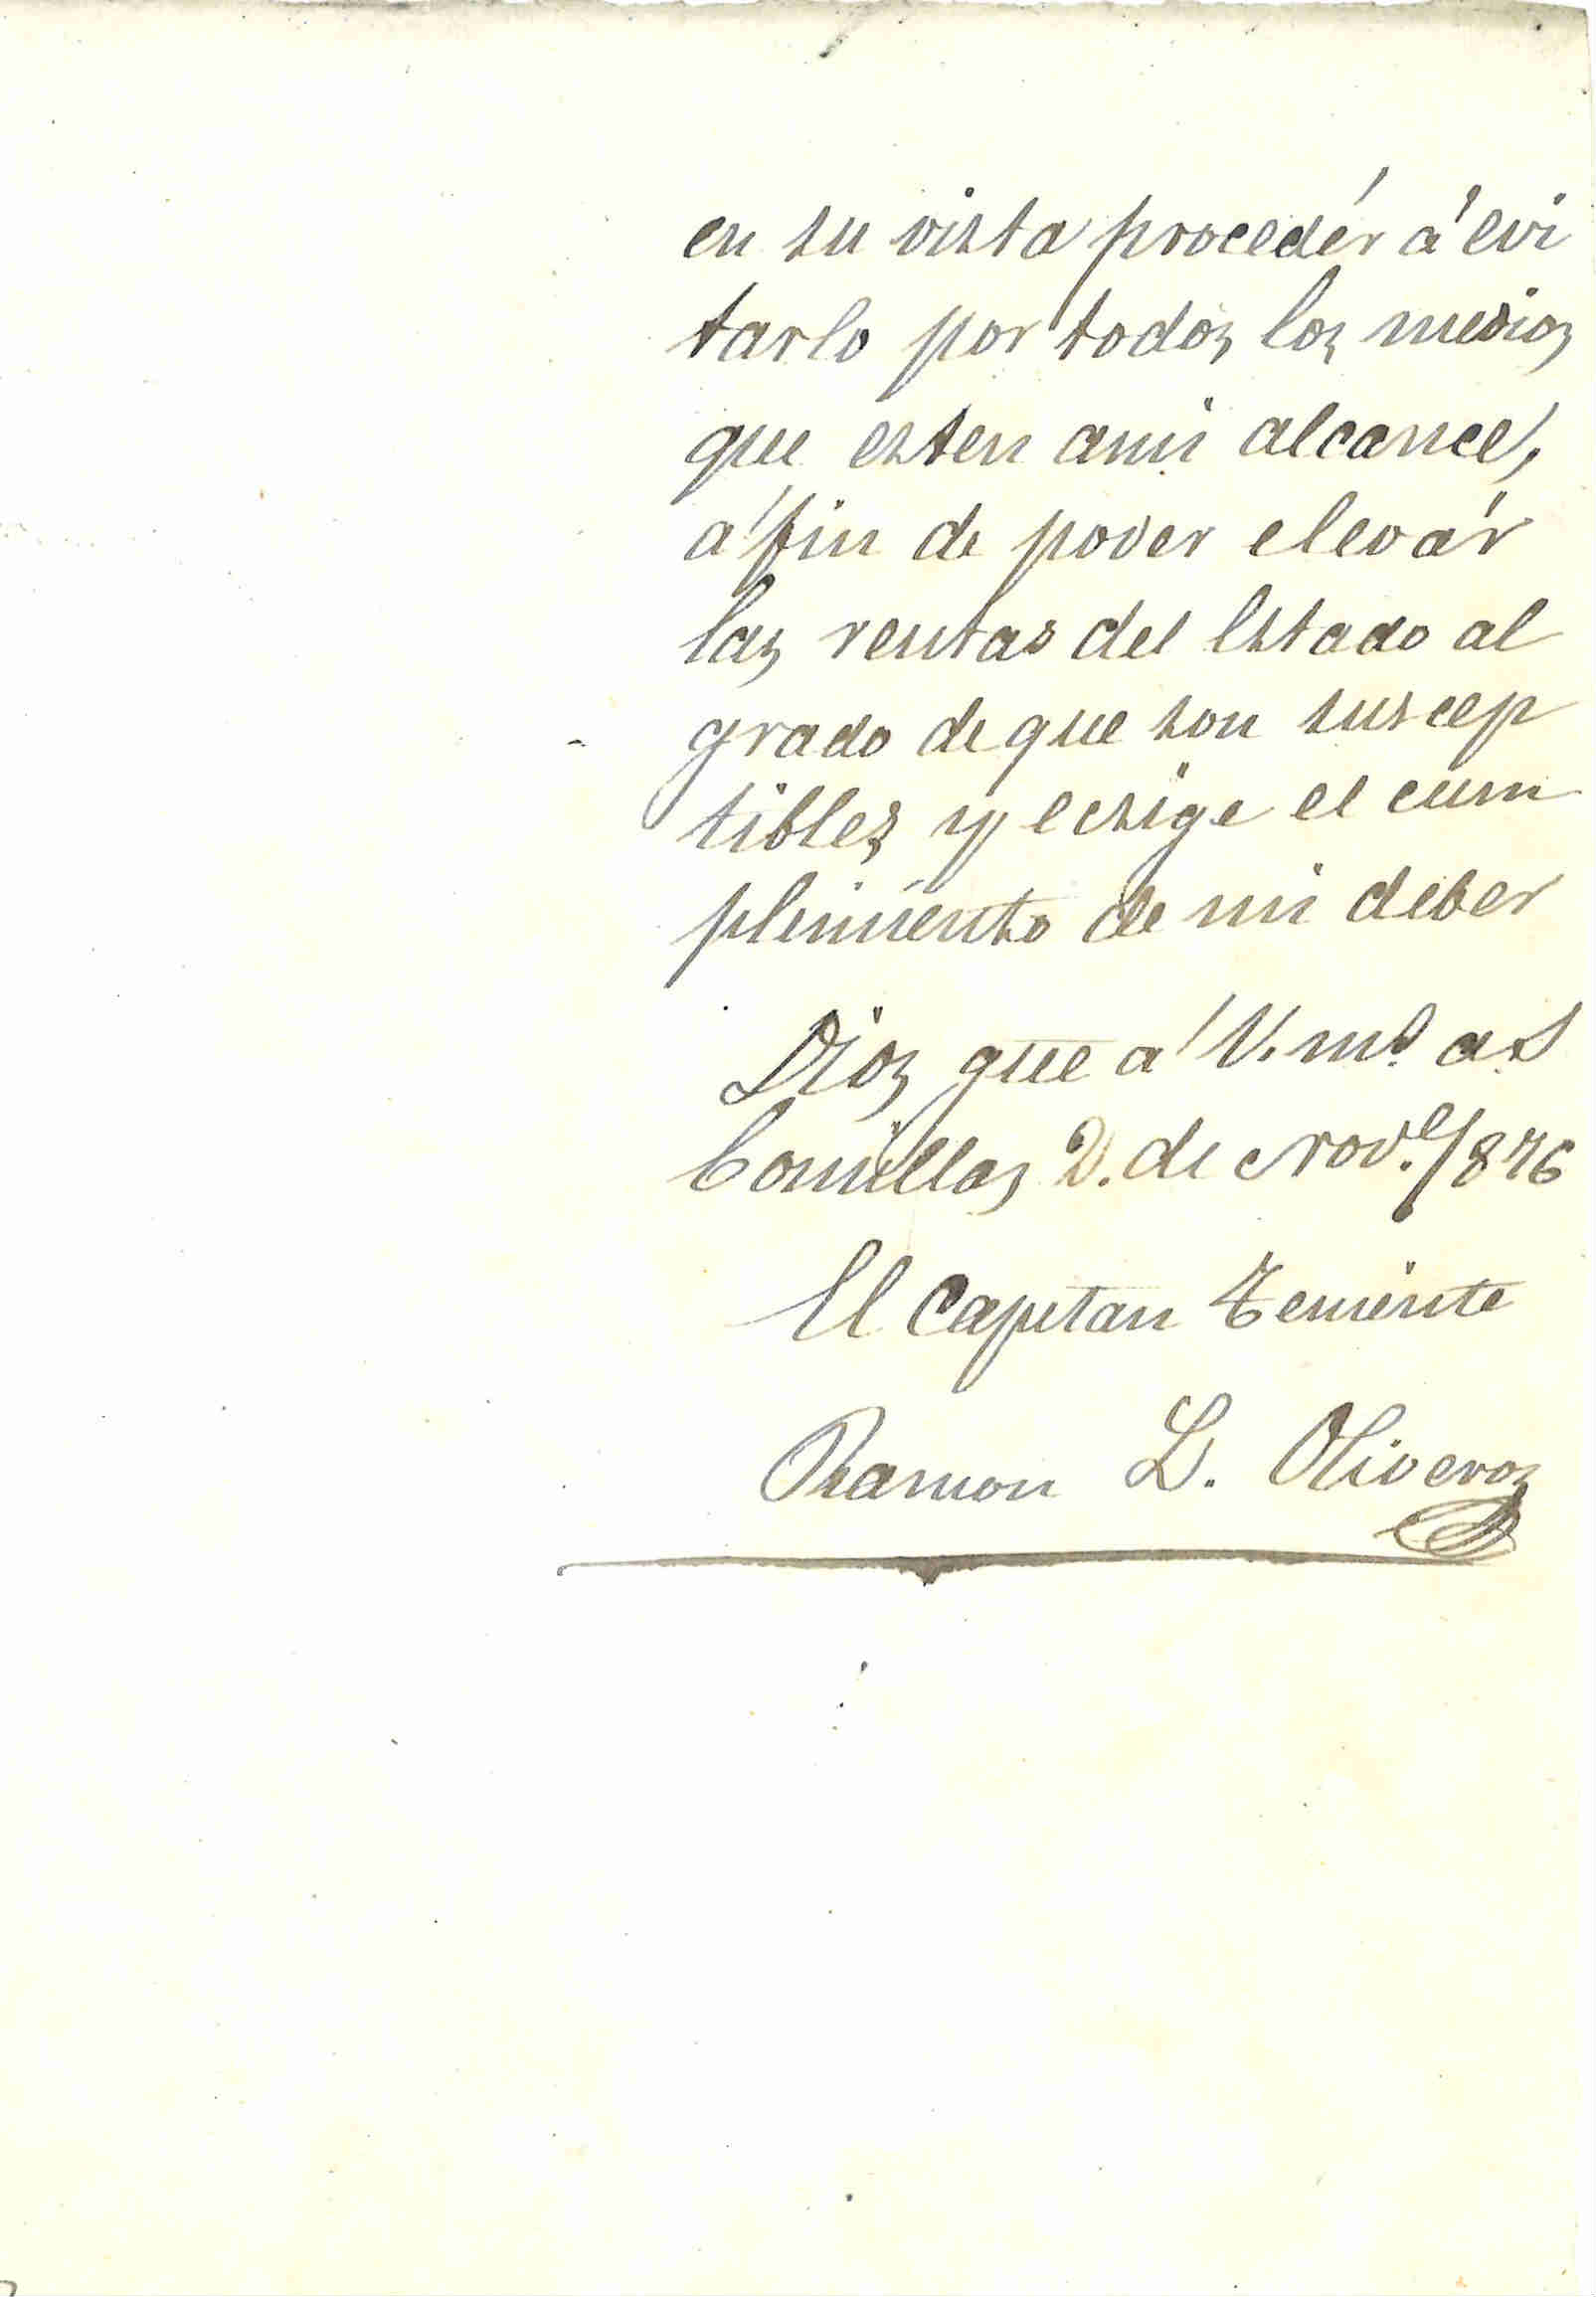 en su vista procedér á evi
tarlo por todos los medios
que esten ami alcance,
á fin de poder elevár
las rentas del Estado al
grado de que son suscep
tibles y ecsige el cum
plimiento de mi deber
Dios gue á V. ms as
Comillas 2. de Nove/876
El Capitan Teniente
Ramon L. Oliveros